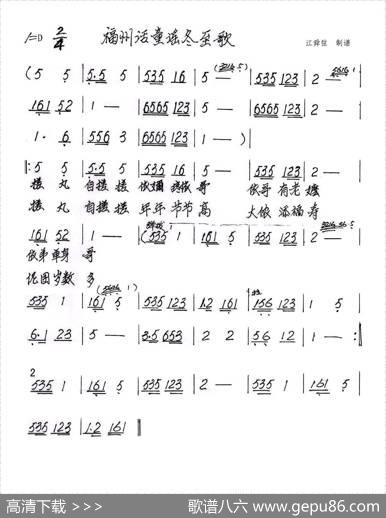 1=D 2/4 福州话童谣冬至歌 江舜佳 制谱
( 5 5 | 5·5 5 | 535 16 | 5 — | 535 123 | 2 — |
161 52 | 1 — | 6565 123 | 5 — | 6565 123 | 2 — |
1· 6 | 556 3 | 6565 123 | 1 — )
|: 5 5 | 5·5 5 | 535 16 | 5 — | 535 123 | 2 — |
搓 丸 自搓 搓 依 哥 依哥 有老
搓 丸 自搓 搓 年年 节节 高 大依 添福 寿
161 52 | 1 — | (535 1 | 161 5 | 535 123 | 2 — |
依弟 单身 哥
岁数 多
535 1 | 161 5 | 535 123 | 1·2 161 | 156 123 | 1 5 |
6·1 23 | 5 — | 3·5 653 | 2 2 | 56 12 | 1 — :|
2
535 1 | 161 5 | 535 123 | 2 — | 535 1 | 161 5 |
535 123 | 1·2 161 ‖
高清下载 >>>
歌谱八六 www.gepu86.com